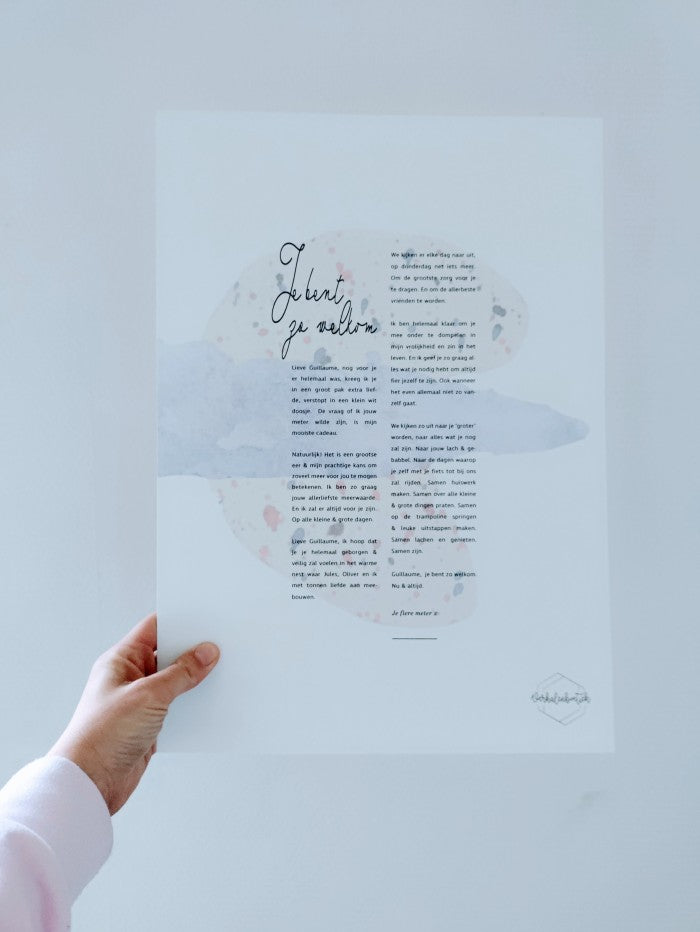 Je bent
zo welkom
Lieve Guillaume, nog voor je
er helemaal was, kreeg ik je
in een groot pak extra lief-
de, verstopt in een klein wit
doosje. De vraag of ik jouw
meter wilde zijn, is mijn
mooiste cadeau.
Natuurlijk! Het is een grootse
eer & mijn prachtige kans om
zoveel meer voor jou te mogen
betekenen. Ik ben zo graag
jouw allerliefste meerwaarde.
En ik zal er altijd voor je zijn.
Op alle kleine & grote dagen.
Lieve Guillaume, ik hoop dat
je je helemaal geborgen &
veilig zal voelen in het warme
nest waar Jules, Oliver en ik
met tonnen liefde aan mee-
bouwen.
We kijken er elke dag naar uit,
op donderdag net iets meer.
Om de grootste zorg voor je
te dragen. En om de allerbeste
vrienden te worden.
Ik ben helemaal klaar om je
mee onder te dompelen in
mijn vrolijkheid en zin in het
leven. En ik geef je zo graag al-
les wat je nodig hebt om altijd
fier jezelf te zijn. Ook wanneer
het even allemaal niet zo van-
zelf gaat.
We kijken zo uit naar je 'groter'
worden, naar alles wat je nog
zal zijn. Naar jouw lach & ge-
babbel. Naar de dagen waarop
je zelf met je fiets tot bij ons
zal rijden. Samen huiswerk
maken. Samen over alle kleine
& grote dingen praten. Samen
op de trampoline springen
& leuke uitstappen maken.
Samen lachen en genieten.
Samen zijn.
Guillaume, je bent zo welkom.
Nu & altijd.
Je fiere meter x